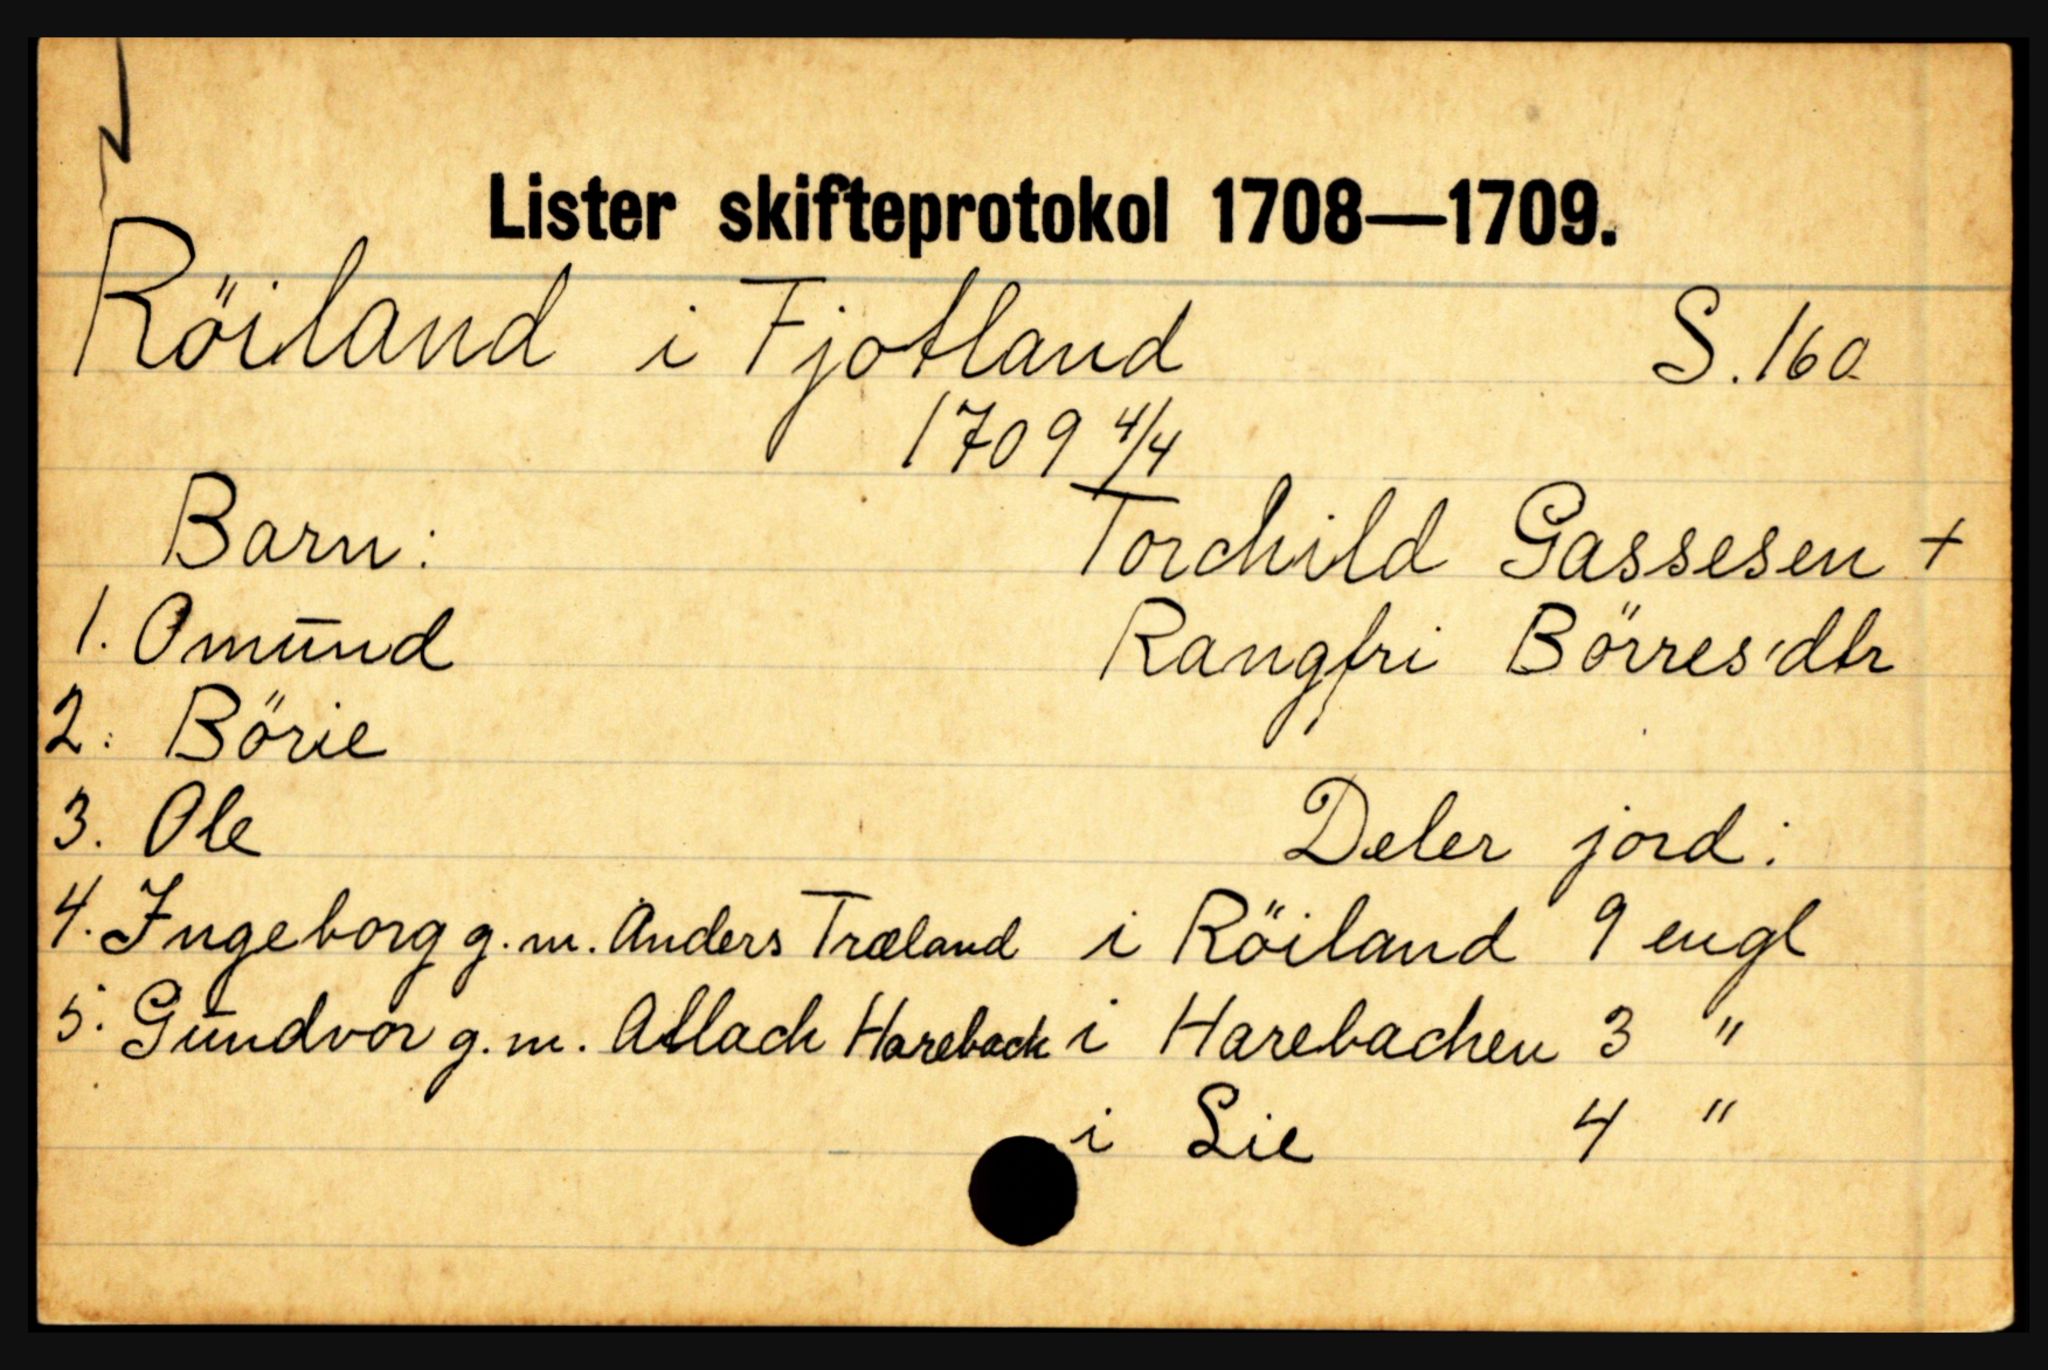 Lister skifteprotokol 1708—1709.
Röiland i Fjotland S. 16a
1709 4/4
Barn: Torchild Gassesen +
1. Omund Rangfri Börres'dtr
2. Börie
3. Ole Deler jord:
4. Ingeborg g.m. Anders Træland i Röiland 9 engl
5. Gundvor g.m. Atlack Hareback i Harebachen 3 "
i Lie 4 "